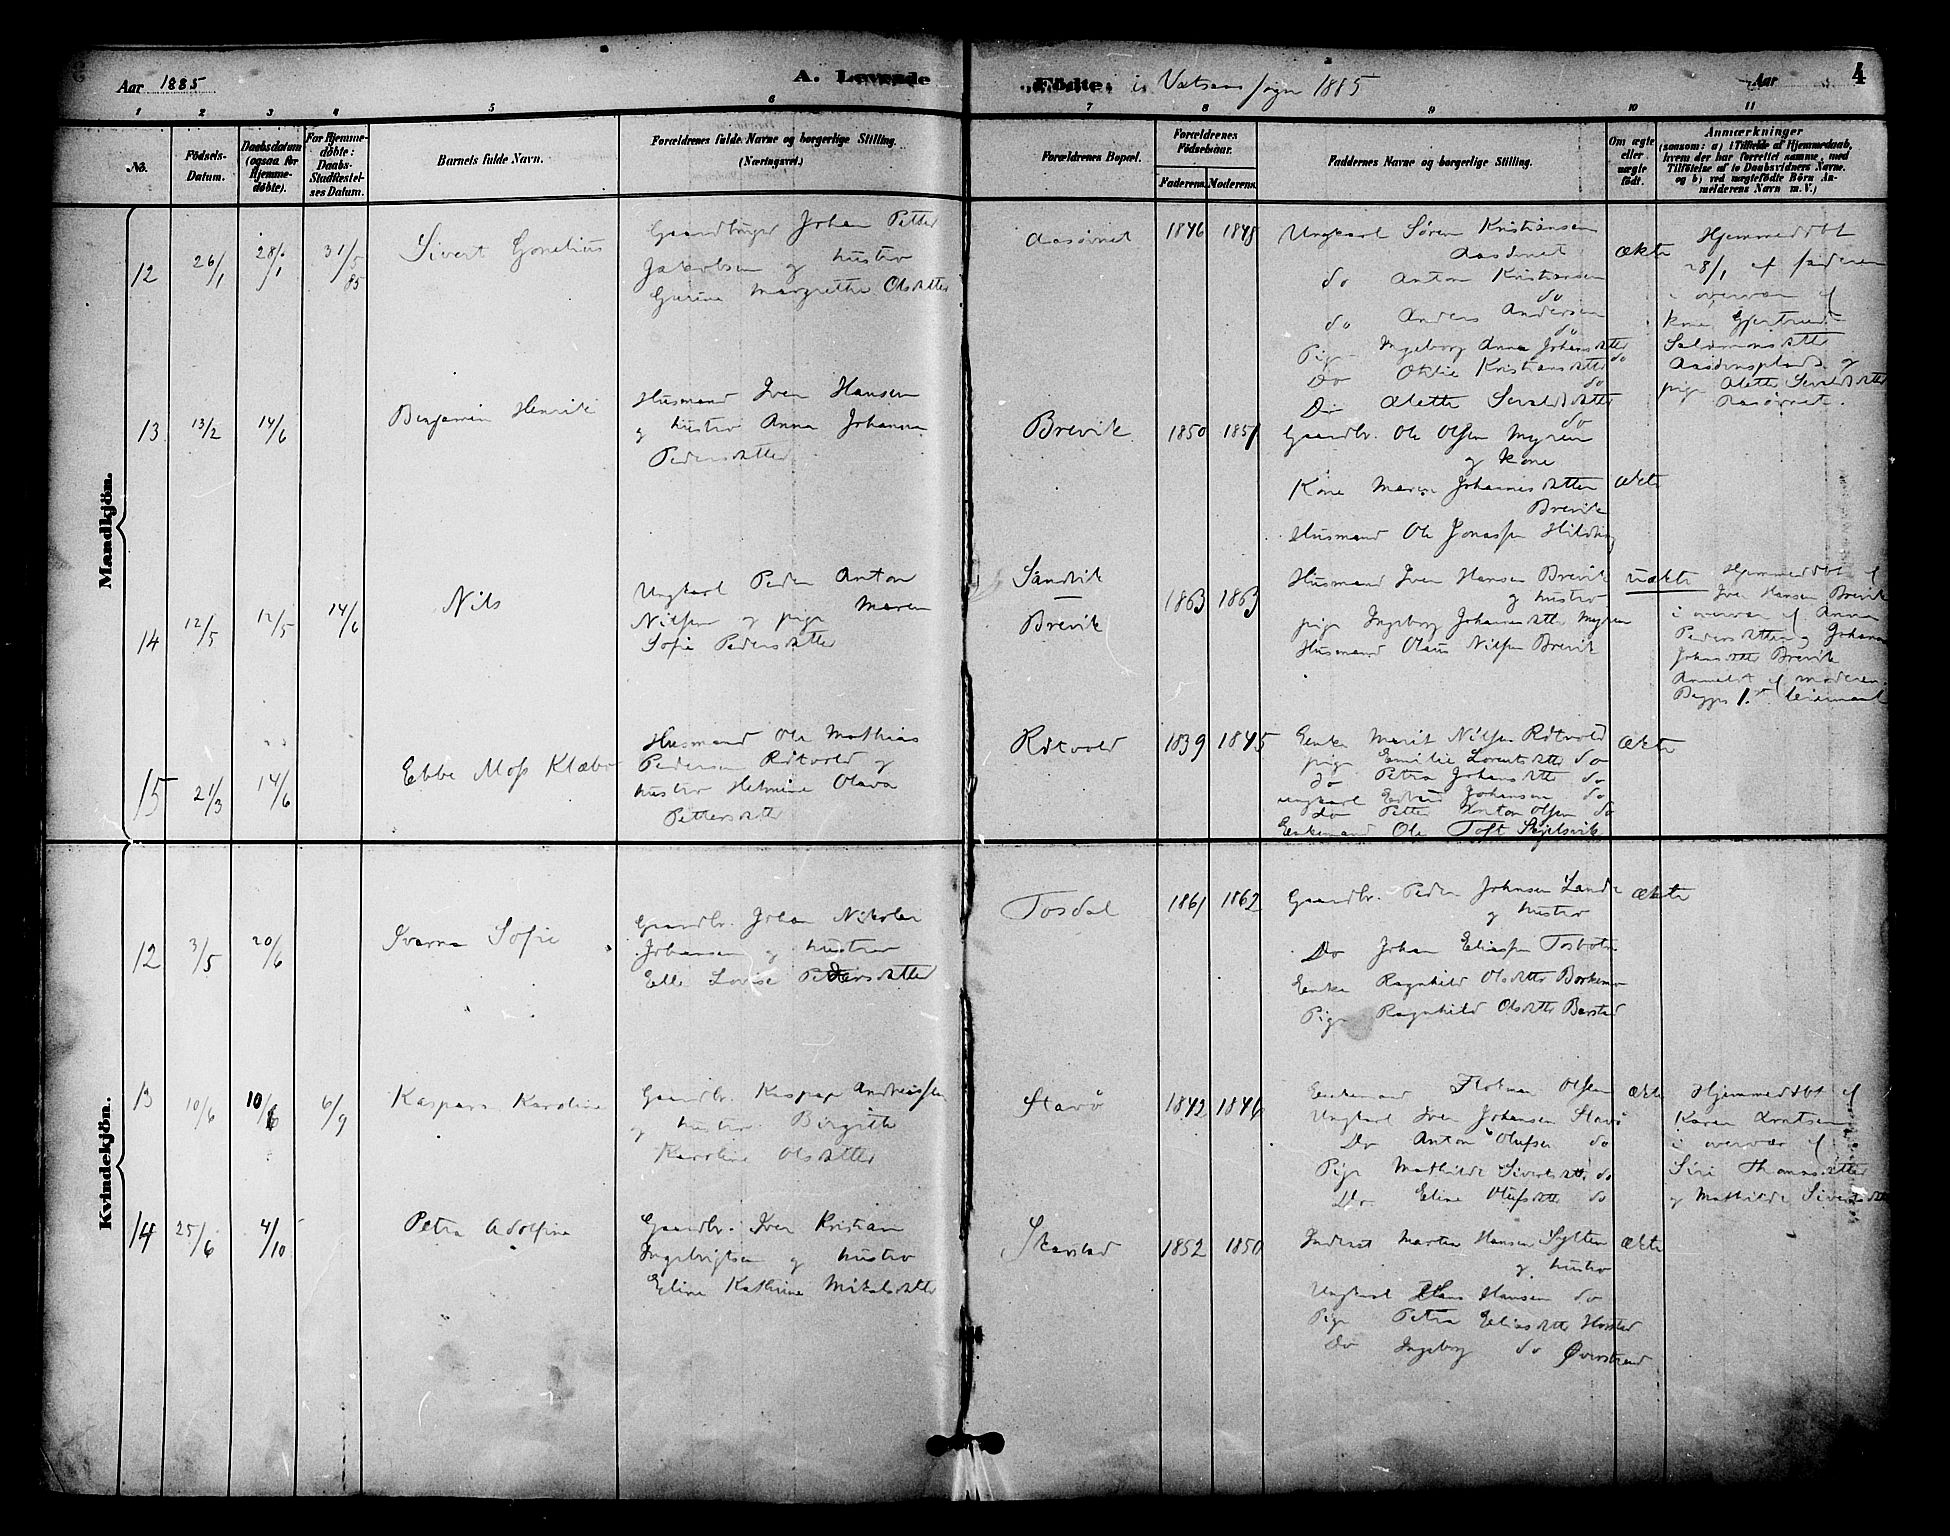 Aar 1885
A. Levende
Födte. i Vatsens sogn 1885
Aar
4
1 2 3 4 5 6 7 8 9 10 11
No.
Födsels-Datum.
Daabsdatum (ogsaa for Hjemme-döbte).
For Hjemme-döbte: Daabs-Stadfæstelses Datum.
Barnets fulde Navn.
Forældrenes fulde Navne og borgerlige Stilling. (Næringsvei.)
Forældrenes Bopæl.
Forældrenes Födselsaar.
Faderens. Moderens.
Faddernes Navne og borgerlige Stilling.
Om ægte eller uægte födt.
Anmærkninger
(saasom: a) i Tilfælde af Hjemmedaab, hvem der har forrettet samme, med Tilföielse af to Daabsvidners Navne. og b) ved uægtefödte Börn Anmelderens Navn m. V.)
Mandkjön.
12 26/1 28/1 31/5 85
Sivert
Gaardbruger Johan Petter
Jakobsen og hustru
Gurine Margrethe Olsdatter
Aasørnet
1846 1848
Ungkarl Sören Kristiansen
do Anton Kristiansen
do
do Anders Andersen
do
Pige Ingeborg Anna Johansdatter do
Do Otilie Kristiansdatter
do
Do Alette Sivaldsdatter
do
ækte
Hjemmedöbt
28/1 af faderen
i overvær af
kone Gjertrud
Salamonsdatter
Aasörnsplads og
pige Alette Sivaldsdatter
Aasörnet.
13 13/2 14/6
Benjamin Henrik
Husmand Iver Hansen
og hustru Anna Johanna
Pedersdatter
Brevik
1850 1851
Gaardbr. Ole Olsen Myren
og kone
Kone Maren Johannesdatter
Brevik
Husmand Ole Jonassen
ækte
14 12/5 12/5 14/6
Nils
Ungkarl Peder Anton
Nilsen og pige Maren
Sofie Pedersdatter
Sandvik
Brevik
1863 1863
Husmand Iver Hansen Brevik
og hustru
pige Ingeborg Johannesdatter Myren
Husmand Olaus Nilsen Brevik
uækte
Hjemmedöbt af
Iver Hansen Brevik
i overvær af Anna
Pedersdatter og Johanna
Johansdatter Brevik
Anmeldt af moderen.
Begges 1.st leiermaal
15 21/3 14/6
Ebbe Moss Klæbo
Husmand Ole Mathias
Pedersen Rötvold og
hustru Helmine Olava
Pettersdatter
Rötvold
1839 1845
Enke Marit Nilsen Rötvold
pige Emilie Lorentsdatter do
do Petra Johansdatter do
ungkarl Edvard Johansen do
Do Petter Anton Olsen do
Enkemand Ole Toft
ækte
Kvindekjön.
12 3/5 20/6
Ivarna Sofie
Gaardbr. Johan Nikolai
Johansen og hustru
Elli Lovise Pedersdatter
Tosdal
1861 1862
Gaardbr. Peder Johnsen Lande
og hustru
Do Johan Eliassen Tosbotn
Enke Ragnhild Olsdatter Borkamo
Pige Ragnhild Olsdatter Barstad
ækte
13 10/6 10/6 6/9
Kaspara Karoline
Gaardbr. Kaspar Andreassen
og hustru Birgitte
Karoline Olsdatter
Stavö
1842 1846
Enkemand Flotman Olsen
Ungkarl Iver Johansen Stavö
Do Anton Olufsen do
Pige Mathilde Sivertsdatter do
Do Eline Olufsdatter do
ækte
Hjemmedöbt af
Karen Arntsen
i overvær af
Siri Thomasdatter
og Mathilde Sivertsdatter
14 25/6 4/10
Petra Adolfine
Gaardbr. Iver Kristian
Ingebrigtsen og hustru
Eline Kathrine Mikalsdatter
Skarstad
1852 1850
Inderst Martin Hansen Sylten
og hustru
Ungkarl Hans Hansen do
Pige Petra Eliasdatter Horstad
Do Ingeborg do Överstrand
ækte